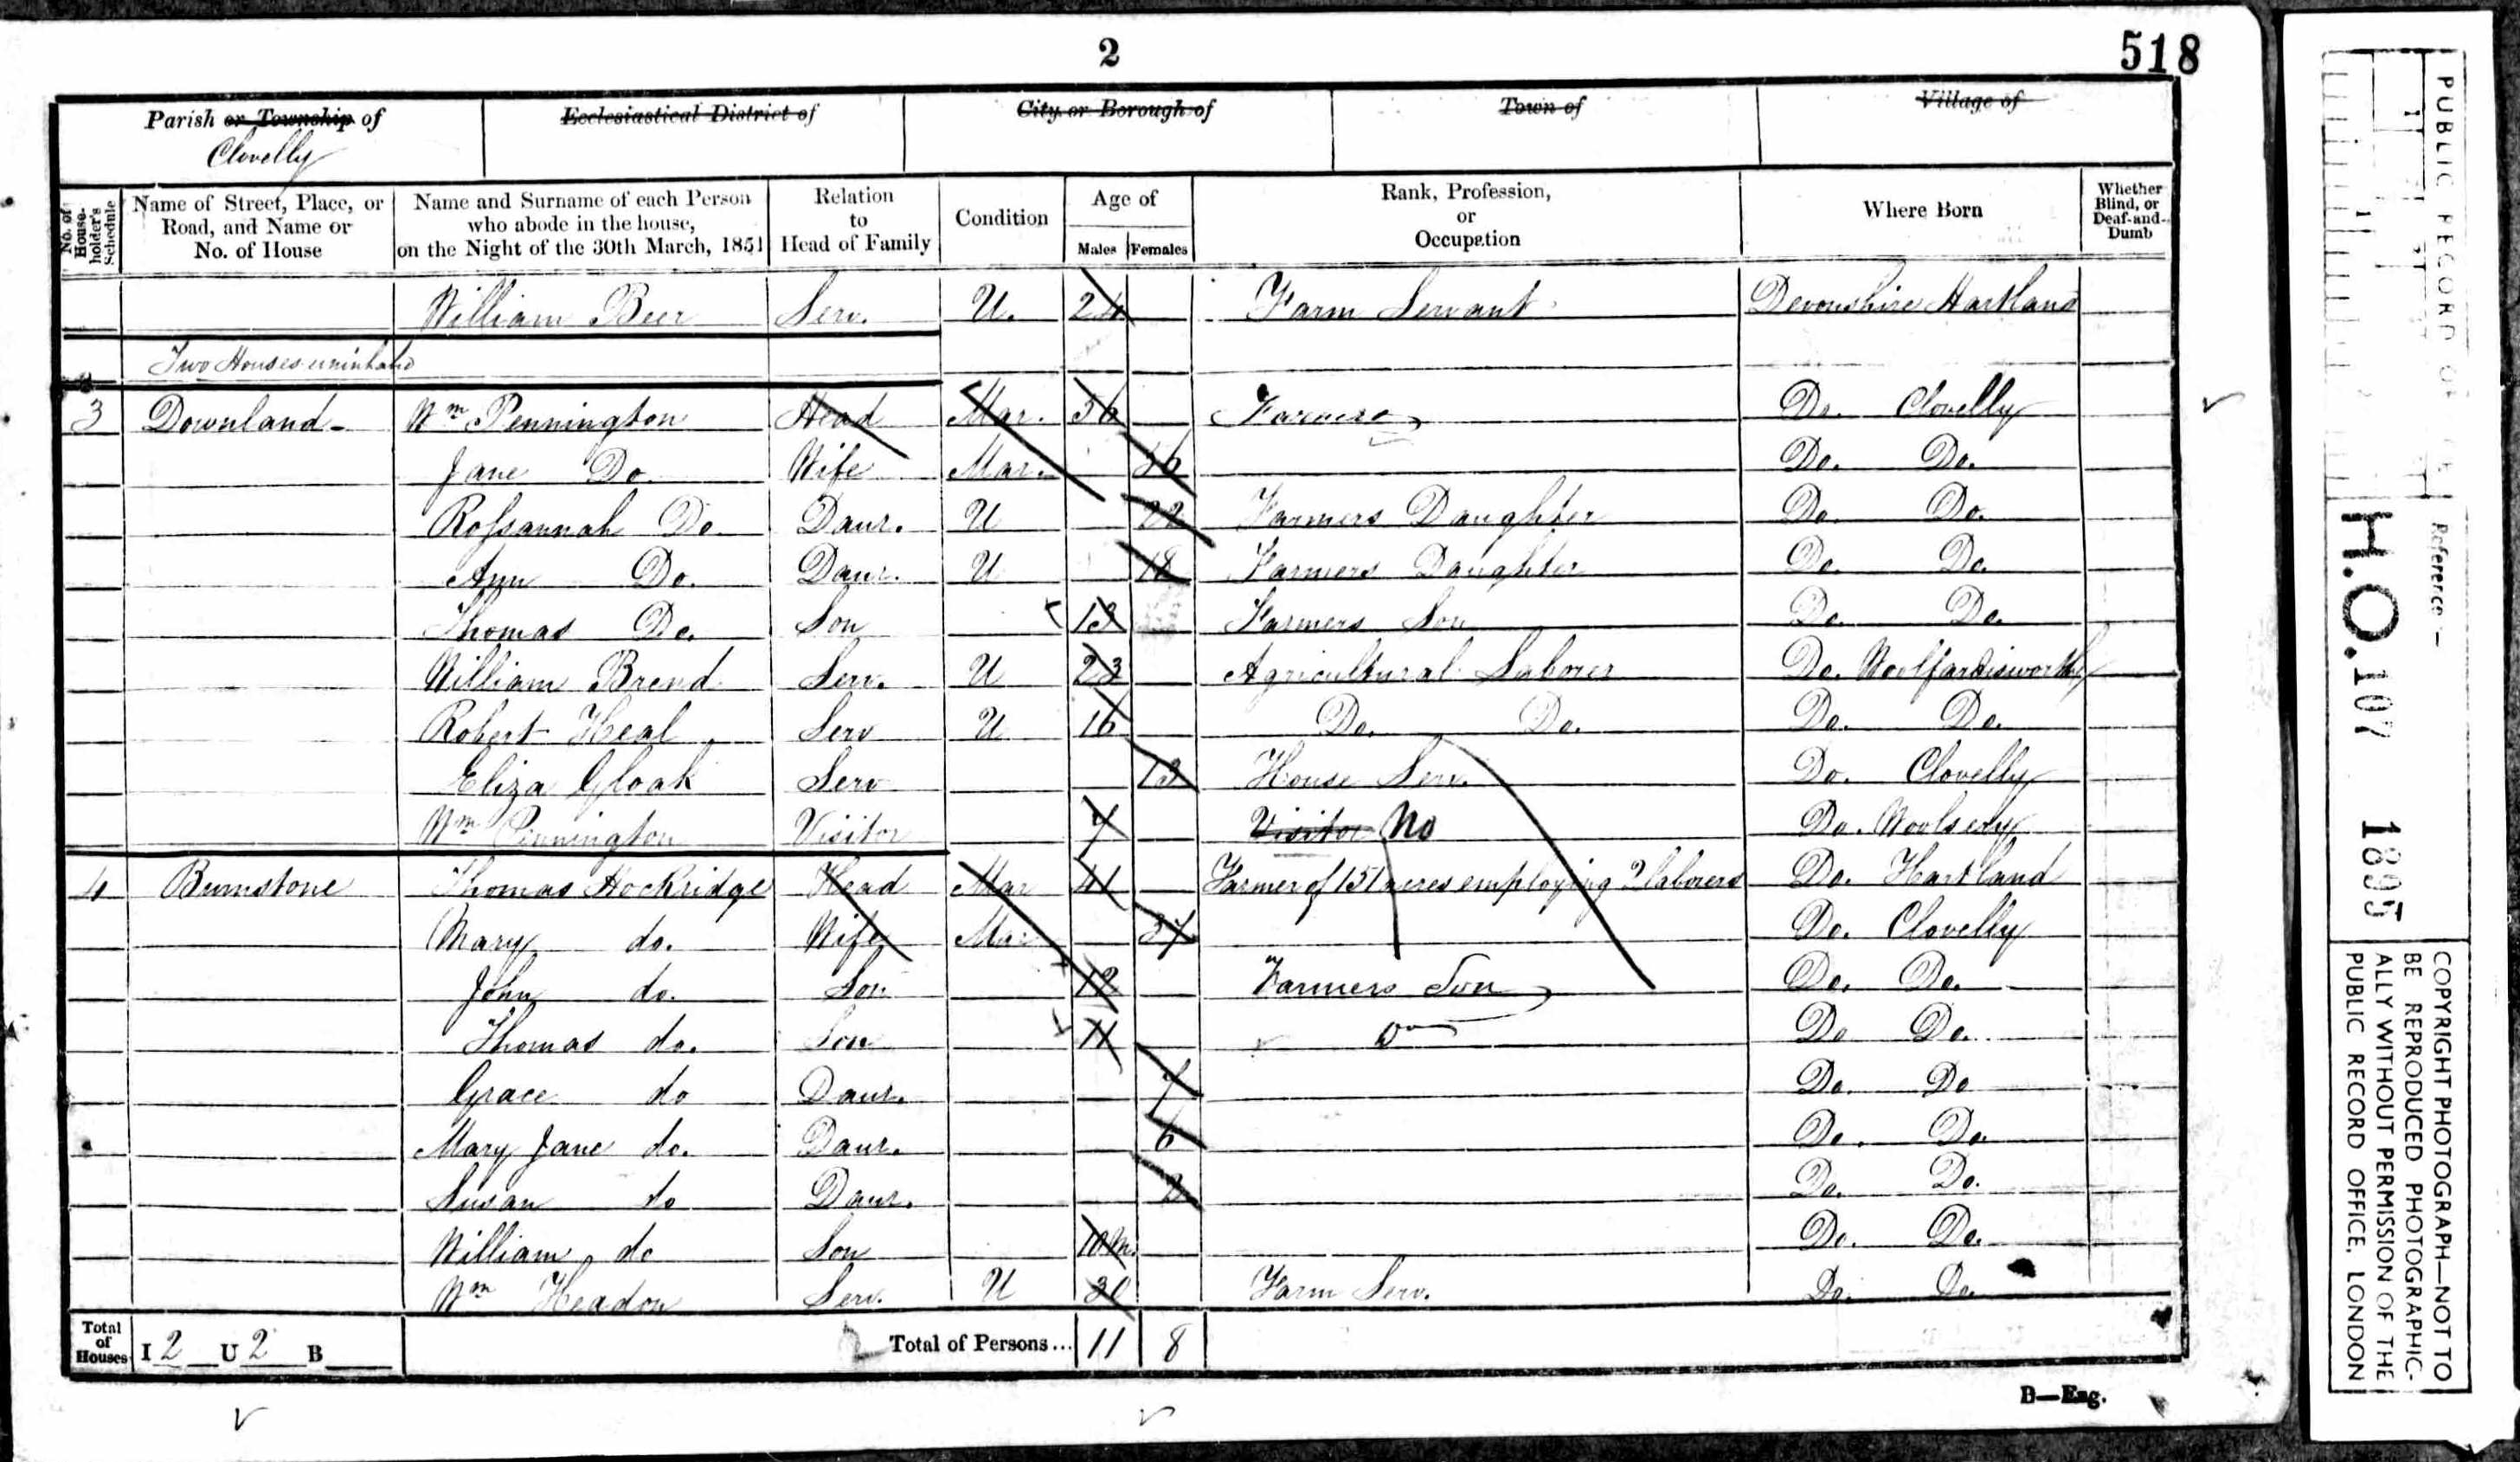 2
518
Parish or Township of
Clovelly
Ecclesiastical District of
City or Borough of
Town of
Village of
No. of House-holder's Schedule
Name of Street, Place, or Road, and Name or No. of House
Name and Surname of each Person who abode in the house, on the Night of the 30th March, 1851
Relation to Head of Family
Condition
Age of
Males Females
Rank, Profession, or Occupation
Where Born
Whether Blind, or Deaf-and-Dumb
William Beer Serv. U. 24 Farm Servant Devonshire Hartland
Two Houses uninhabd
3 Downland Wm Pennington Head Mar. 56 Farmer Do. Clovelly
Jane Do. Wife Mar. Do. Do.
Rossannah Do. Daur. U 22 Farmers Daughter Do. Do.
Ann Do. Daur. U 18 Farmers Daughter Do. Do.
Thomas Do. Son 13 Farmers Son Do. Do.
William Brend Serv. U 23 Agricultural Laborer Do. Woolfardisworthy
Robert Heal Serv U 16 Do. Do. Do. Do.
Eliza Gloak Serv 13 House Serv. Do. Clovelly
Wm Pennington Visitor 7 Visitor No Do. Woolsery
4 Burnstone Thomas Hockridge Head Mar 41 Farmer of 151 acres employing 2 laborers Do. Hartland
Mary do. Wife Mar 37 Do. Clovelly
John do. Son 12 Farmers Son Do. Do.
Thomas do. Son 11 Do Do Do.
Grace do Daur. 7 Do. Do
Mary Jane do. Daur. 6 Do. Do.
Susan do Daur. 2 Do. Do.
William do Son 10m. Do. Do.
Wm Headon Serv. U 30 Farm Serv. Do. Do.
Total of Houses I 2 U 2 B
Total of Persons... 11 8
D—Eng.
PUBLIC RECORD OF
Reference —
H.O. 107
1895
COPYRIGHT PHOTOGRAPH—NOT TO
BE REPRODUCED PHOTOGRAPHIC-
ALLY WITHOUT PERMISSION OF THE
PUBLIC RECORD OFFICE, LONDON